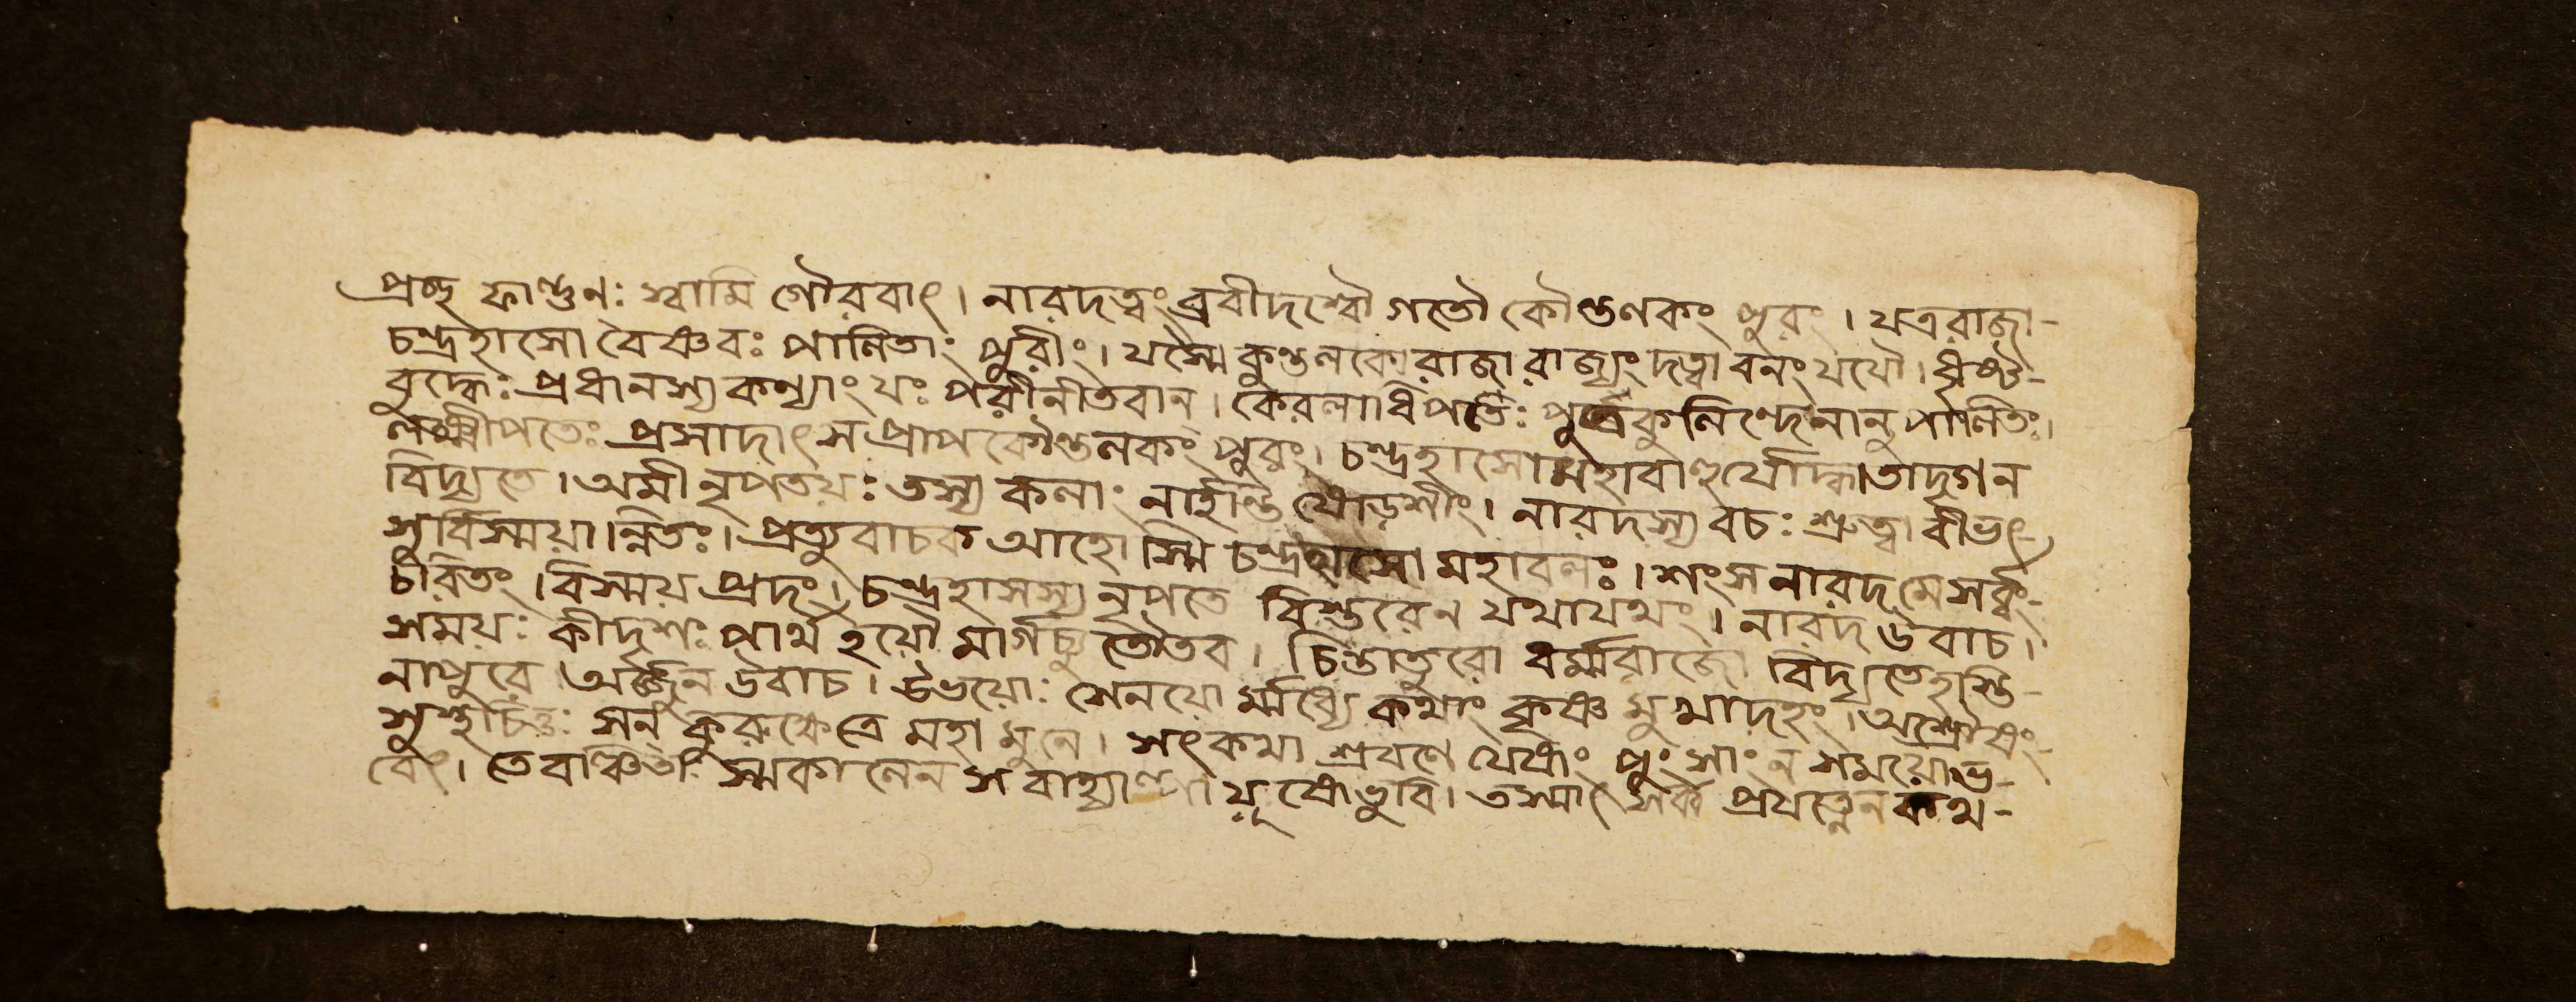 প্রচ্ছ ফাল্গুনঃ স্বামি গৌরবাৎ। নারদত্বং ব্রবীদশ্বৌ গতৌ কৌণ্ডণকং পুরং। যত্ররাজা-
চন্দ্রহাসো বৈষ্ণবঃ পালিতাং পুরীং। যস্মৈ কুণ্ডলকো রাজা রাজ্যং দত্বা বনং যযৌ। ধৃষ্ট-
বুদ্ধেঃ প্রধানস্য কন্যাং যঃ পরীনীতবান্। কেরলাধিপতেঃ পুত্র কুলিন্দেনানু পালিতঃ।
লক্ষ্মীপতেঃ প্রসাদাৎ স প্রাপ কৌণ্ডলকং পুরং। চন্দ্রহাসো মহাবাহুর্যোদ্ধা তাদৃগ ন
বিদ্যতে। অমী নৃপতয়ঃ তস্য কলাং নার্হন্তি ষোড়শীং। নারদস্য বচঃ শ্রুত্বা বীভৎ-
সুর্বিস্ময়ান্নিতঃ। প্রত্যুবাচক আহো স্মি চন্দ্রহাসো মহাবলঃ। শংস নারদ মে সর্ব্বং-
চরিতং। বিস্ময় প্রদং। চন্দ্রহাসস্য নৃপতে বিস্তরেন যথাযথং। নারদ উবাচ।
সময়ঃ কীদৃশঃ পার্থ হয়ৌ মার্গচ্যুতৌ তব। চিন্তাতুরো ধর্ম্মরাজো বিদ্যতে হস্তি-
নাপুরে। অর্জ্জুন উবাচ। উভয়োঃ সেনয়ো র্ম্মধ্যে কথাং কৃষ্ণ মুখাদহং। অশ্রৌষং-
সুস্থচিত্তঃ সন্ কুরুক্ষেত্রে মহা মুনে। সৎকথা শ্রবণে যেষাং পুংসাং ন সময়ো ভ-
বেৎ। তে বাঞ্চিতাঃ স্মকালেন স বাহ্যা য়ুষো ভুবি। তস্মাৎ সর্ব্ব প্রযত্নেন কথ-